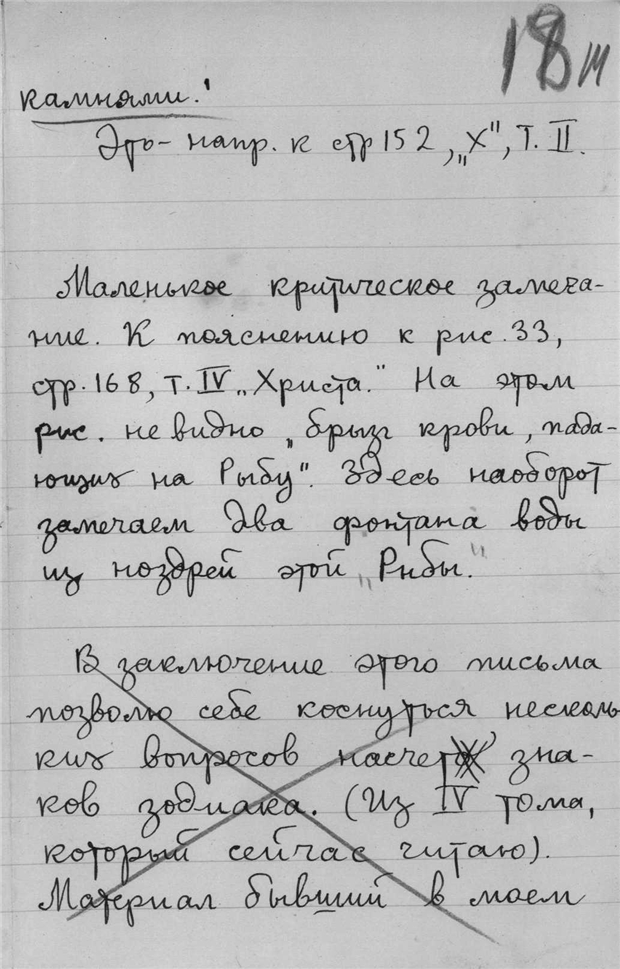 18 III
камнями.'
Это - напр. к стр 152, „X", т. II.
Маленькое критическое замеча-
ние. К пояснению к рис. 33,
стр. 168, т. IV „Христа." На этом
рис. не видно „брызг крови, пада-
ющих на Рыбу". Здесь наоборот
замечаем два фонтана воды
из ноздрей этой „Рыбы."
В заключение этого письма
позволю себе коснуться несколь
ких вопросов насчет зна-
ков зодиака. (Из IV тома,
который сейчас читаю).
Материал бывший в моем